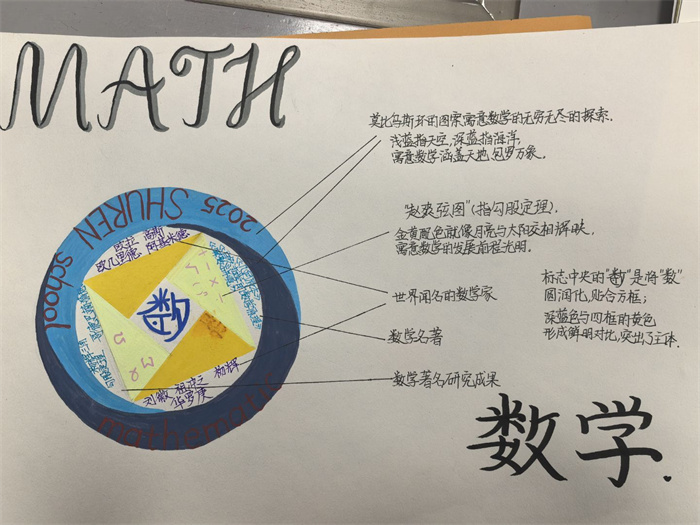 MATH
莫比乌斯环的图案寓意数学的无穷无尽的探索.
浅蓝指天空,深蓝指海洋,
寓意数学涵盖天地,包罗万象.
"赵爽弦图"(指勾股定理).
金黄配色就像月亮与太阳交相辉映,
寓意数学的发展前程光明.
世界闻名的数学家
数学名著
数学著名研究成果
标志中央的"数"是将"数"
圆润化,贴合方框;
深蓝色与四框的黄色
形成鲜明对比,突出了主体.
2025 SHUREN school
mathematic
欧拉 高斯
欧几里德 阿基米德
数
杨辉
刘徽 祖冲之
华罗庚
数学.